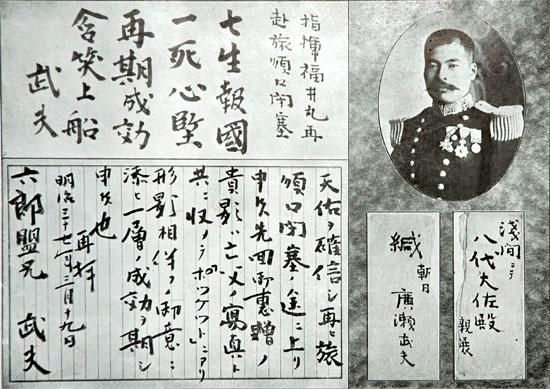 指揮福井丸再
赴旅順口閉塞
七生報國
一死心堅
再期成効
含笑上船
武夫
天佑ヲ確信シ再ヒ旅
順口閉塞ノ途ニ上リ
申候先回御恵贈ノ
貴影ハ亡父ノ寫真ト
共ニ収メテ「ポツケツト」ニアリ
形影相伴フ御意ニ
添ヒ一層ノ成効ヲ期シ
申候也
再拝
明治三十七年三月十九日
武夫
六郎盟兄
淺間ニテ
八代大佐殿
親展
緘
廣瀬武夫